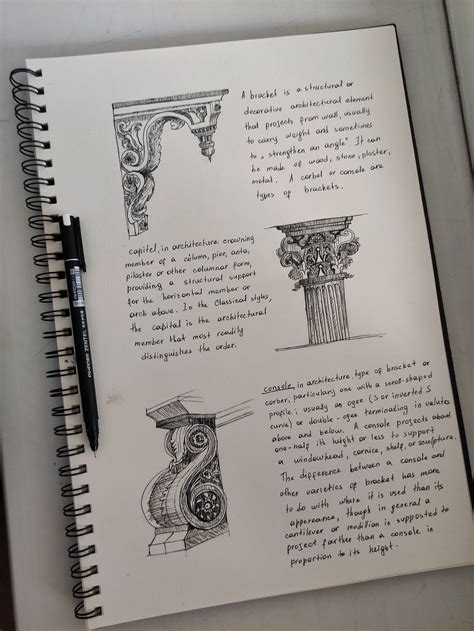 A bracket is a structural or
decorative architectural element
that projects from wall, usually
to carry weight and sometimes
to „strengthen an angle". It can
be made of wood, stone, plaster,
metal. A corbel or console are
types of brackets.
capitel, in architecture crowning
member of a column, pier, anta,
pilaster or other columnar form,
providing a structural support
for the horizontal member or
arch above. In the Classical styles,
the capital is the architectural
member that most readily
distinguishes the order.
console, in architecture, type of bracket or
corber, particulary one with a scroll-shaped
profile; usually an ogee (S or inverted S
curve) or double-ogee terminating in volutes
above and below. A console projects about
one-half its height or less to support
a windowhead, cornice, shelf, or sculpture.
The difference between a console and
other varieties of bracket has more
to do with where it is used than its
appereance, though in general a
cantilever or modillion is supposted to
project farther than a console in
proportion to its height.